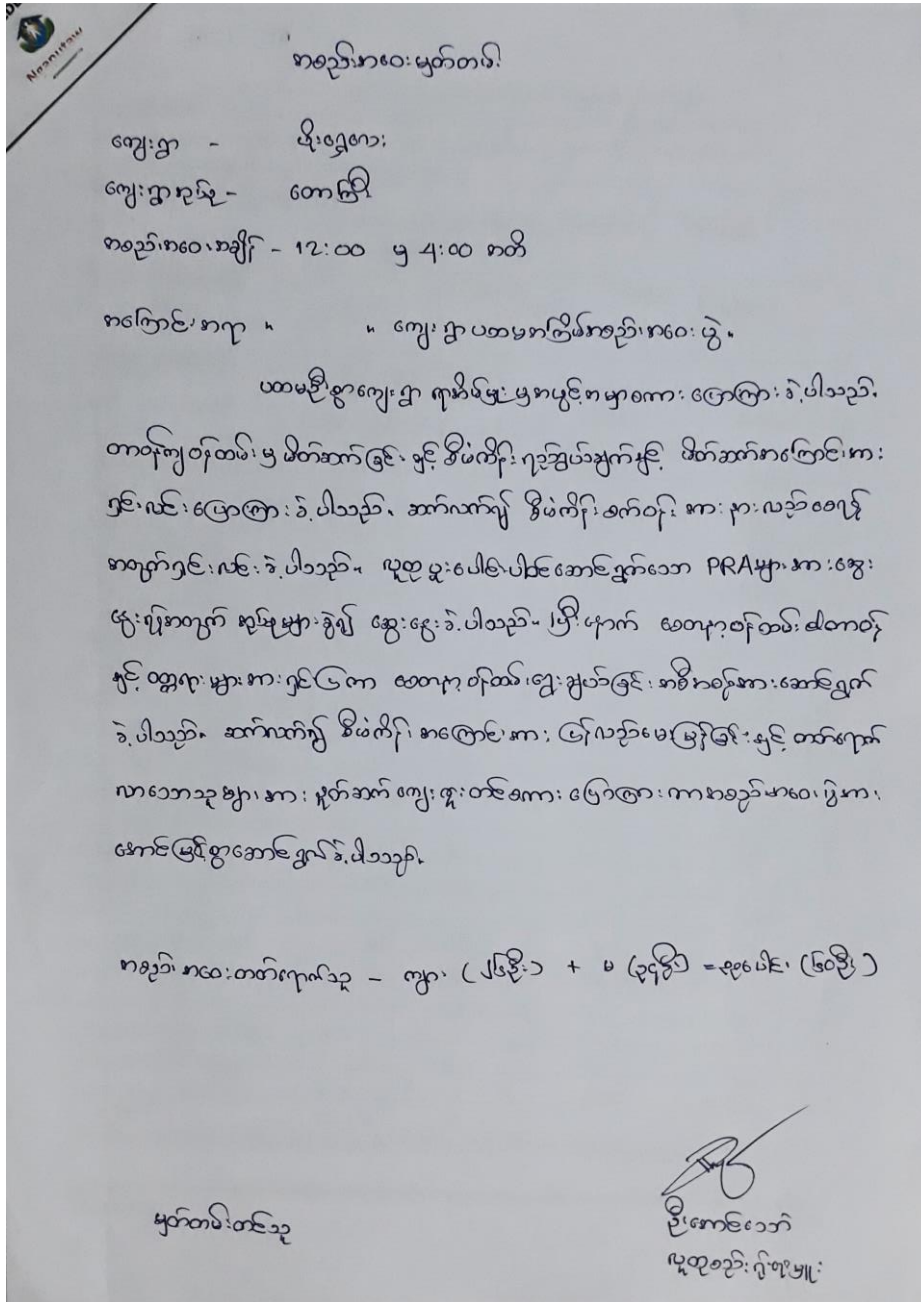 Naanutaw
အစည်းအဝေးမှတ်တမ်း
ကျေးရွာ - မိုးရွှေလေး
ကျေးရွာအုပ်စု - တောကြီး
အစည်းအဝေးအချိန် - 12:00 မှ 4:00 အထိ
အကြောင်းအရာ ။ ။ ကျေးရွာပထမအကြိမ်အစည်းအဝေးပွဲ။
ပထမဦးစွာကျေးရွာ ရာအိမ်မှူးမှအဖွင့်အမှာစကား ပြောကြားခဲ့ပါသည်။
တာဝန်ကျဝန်ထမ်းမှ မိတ်ဆက်ခြင်းနှင့် စီမံကိန်းရည်ရွယ်ချက်နှင့် မိတ်ဆက်အကြောင်းအား
ရှင်းလင်းပြောကြားခဲ့ပါသည်။ ဆက်လက်၍ စီမံကိန်းစက်ဝန်းအား နားလည်စေရန်
အတွက်ရှင်းလင်းခဲ့ပါသည်။ လူထုပူးပေါင်းပါဝင်ဆောင်ရွက်သော PRAများအားဆွေး
နွေးရန်အတွက် အုပ်စုများခွဲ၍ ဆွေးနွေးခဲ့ပါသည်။ ပြီးနောက် စေတနာ့ဝန်ထမ်း၏တာဝန်
နှင့် ဝတ္တရားများအားရှင်းပြကာ စေတနာ့ဝန်ထမ်းရွေးချယ်ခြင်းအစီအစဉ်အားဆောင်ရွက်
ခဲ့ပါသည်။ ဆက်လက်၍ စီမံကိန်းအကြောင်းအား ပြန်လည်မေးမြန်းခြင်းနှင့် တက်ရောက်
လာသောသူများအား နှုတ်ဆက်ကျေးဇူးတင်စကား ပြောကြားကာအစည်းအဝေးပွဲအား
အောင်မြင်စွာဆောင်ရွက်ခဲ့ပါသည်။
အစည်းအဝေးတက်ရောက်သူ - ကျား (၂၆ဦး) + မ (၃၄ဦး) = စုစုပေါင်း (၆၀ဦး)
မှတ်တမ်းတင်သူ
ဦးအောင်သောဘဲ
လူထုစည်းရုံးရေးမှူး